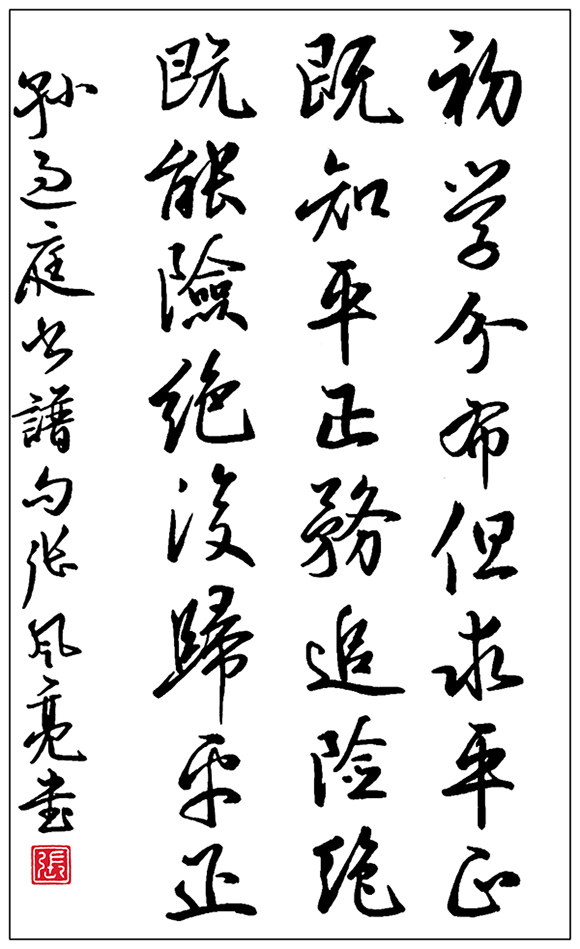 初学分布但求平正
既知平正務追险绝
既能險绝復歸平正
孙过庭书譜句张风亮书
張